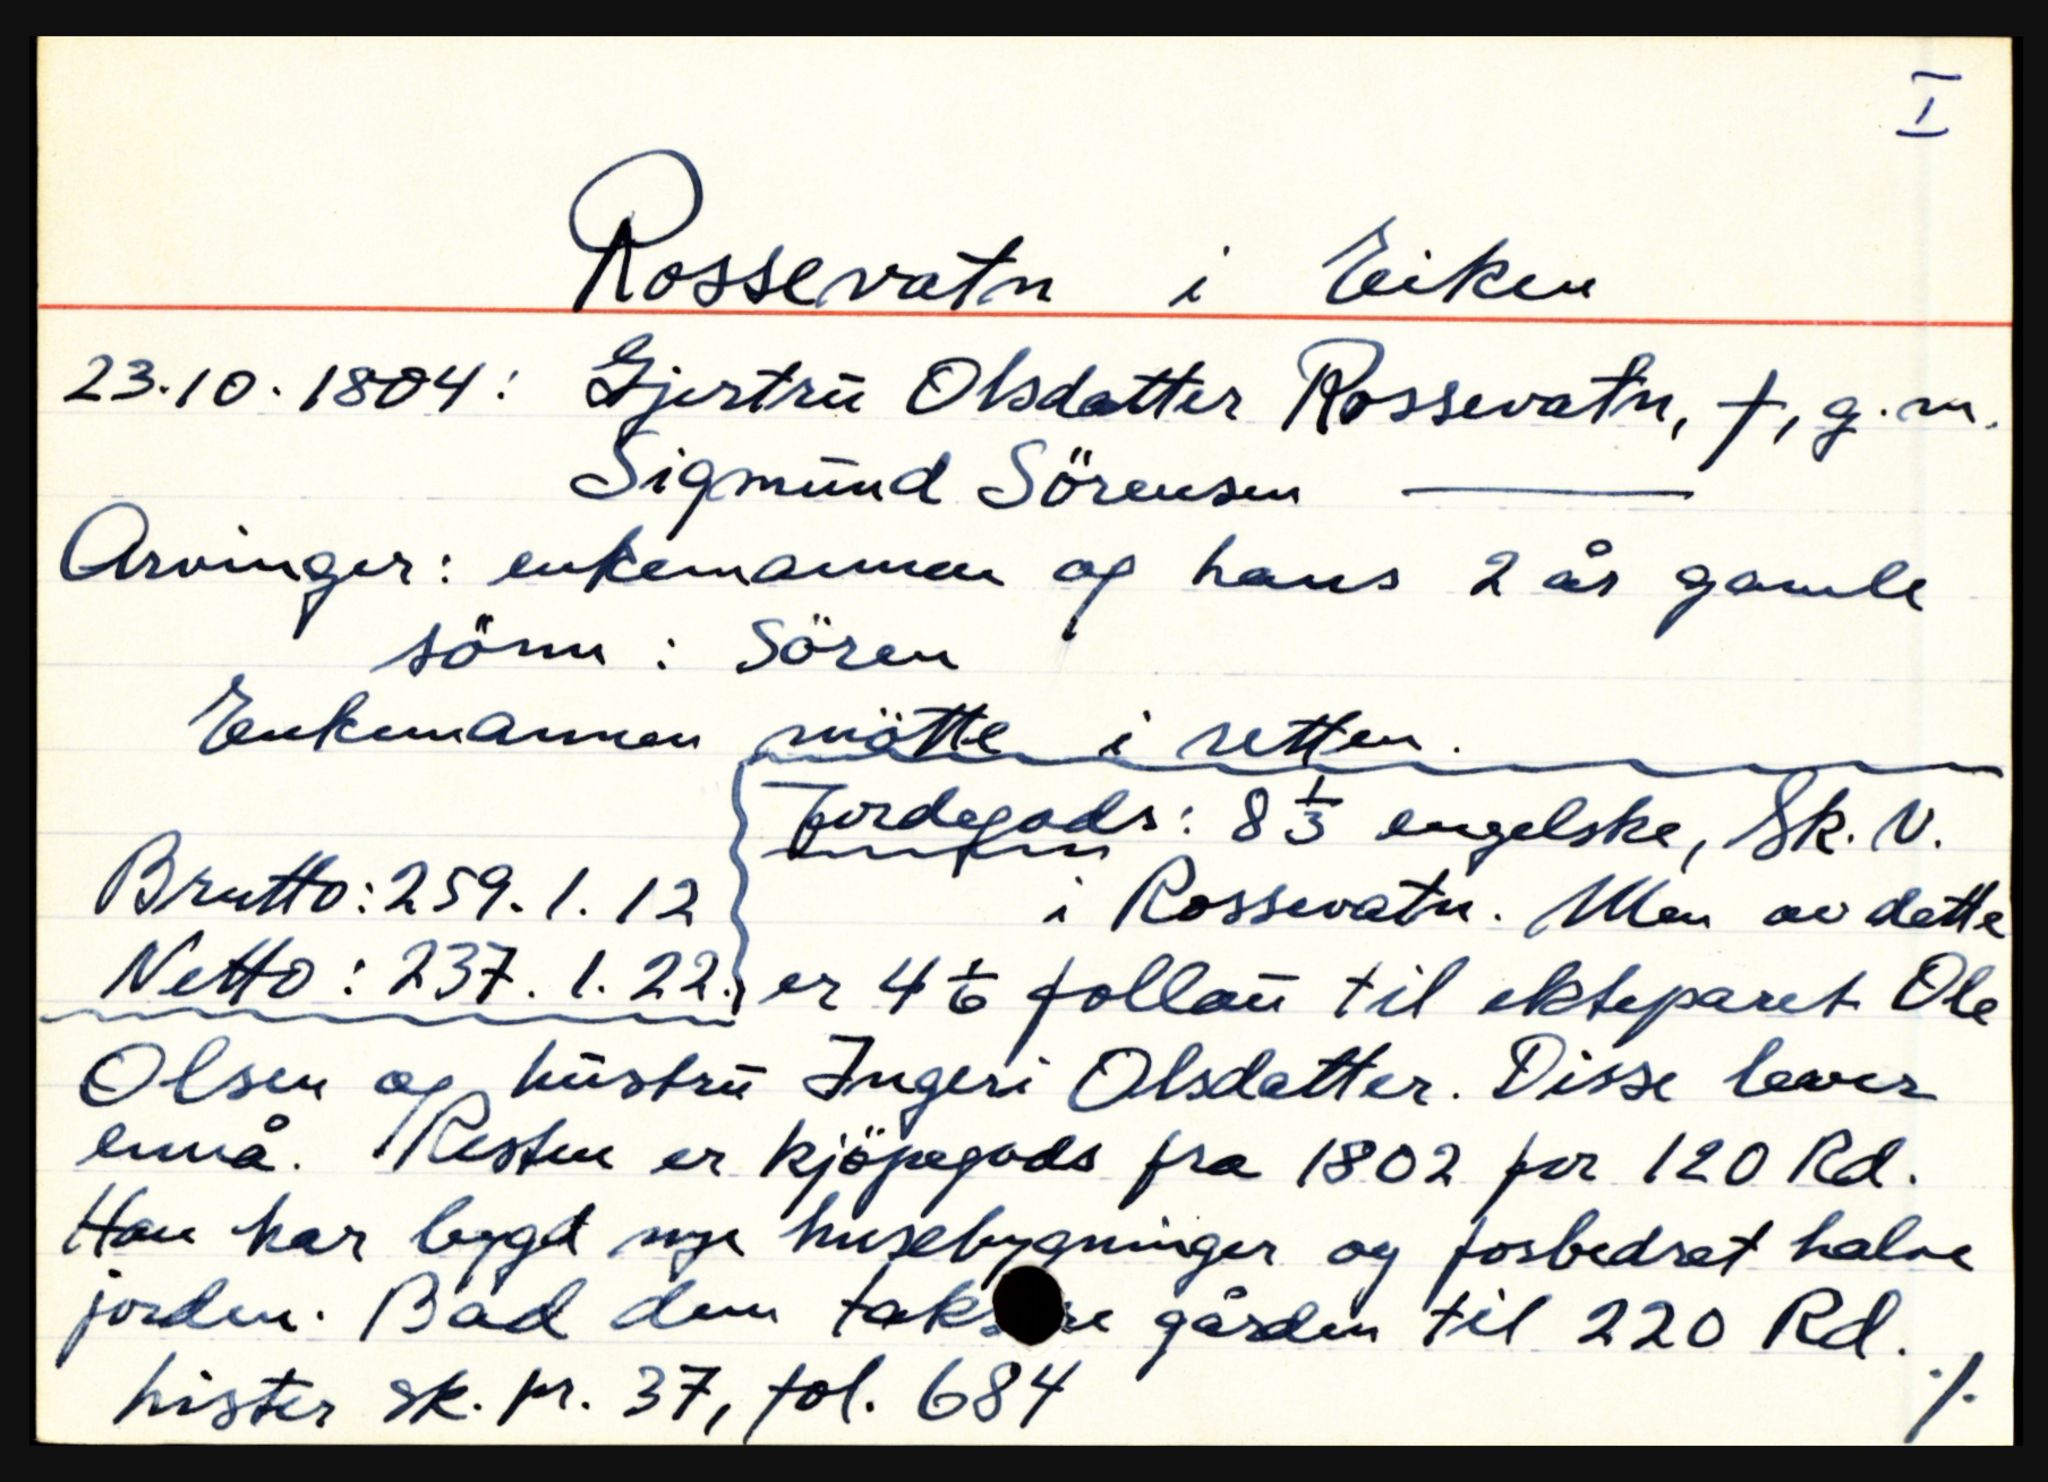 I
Rossevatn i Eiken
23.10.1804: Gjertrū Olsdatter Rossevatn, †, g.m.
Sigmūnd Sörensen ———
Arvinger: enkemannen og hans 2 år gamle
sönn: Sören
Enkemannen mötte i retten.
Jordegods: 8 1/3 engelske, Sk. V.
Brutto: 259. 1. 12
i Rossevatn. Men av dette
Netto: 237. 1. 22.
er 4 1/6 follaū til ekteparet Ole
Olsen og hūstrū Ingeri Olsdatter. Disse lever
ennå. Resten er kjöpegods fra 1802 for 120 Rd.
Han har bygd nye husebygninger og forbedret halve
jorden. Bad dem taks re gården til 220 Rd.
Lister sk. pr. 37, fol. 684
./.